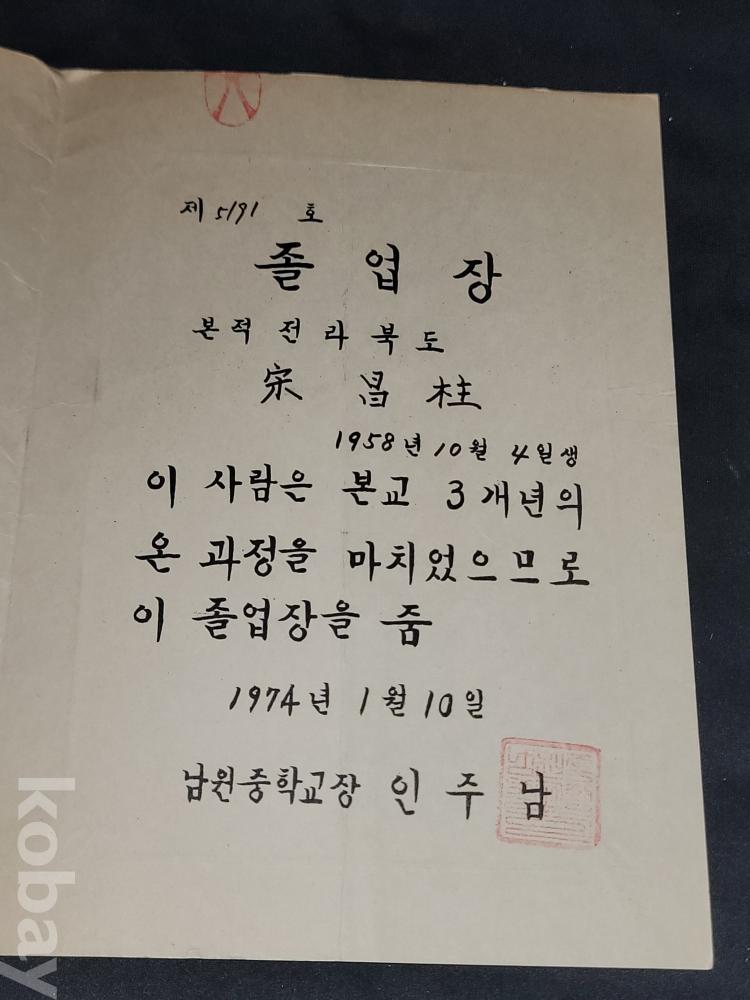 제 5191 호
졸업장
본적 전라북도
宋昌柱
1958년 10월 4일생
이 사람은 본교 3개년의
온 과정을 마치었으므로
이 졸업장을 줌
1974년 1월 10일
남원중학교장 인주남
kobay